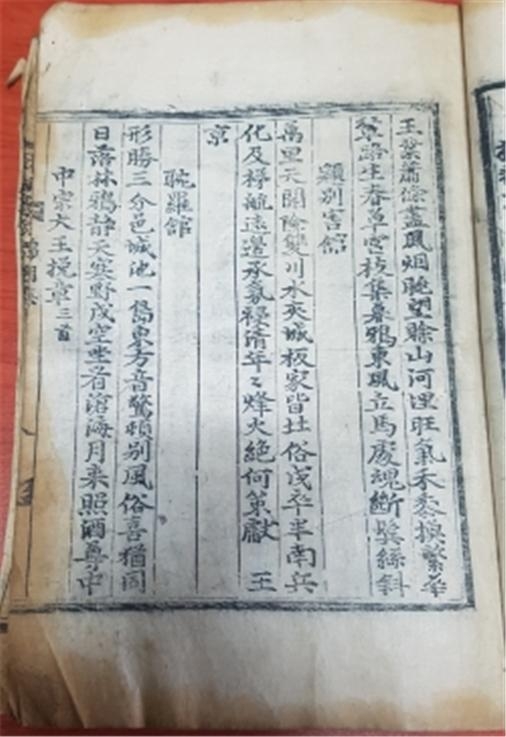 玉葉蕭條盡風烟眺望賖山河湮旺氣禾黍換繁華
輦路生春草宮枝集暮鴉東風立馬處魂斷鬢絲斜
別害舘
萬里天開險雙川水夾城板家皆土俗戍卒半南兵
化及梯航遠邊承氛祲淸年〻烽火絶何策獻 王
京
耽羅舘
形勝三分邑城池一島東方音驚頓別風俗喜猶同
日落林鴉靜天寒野戍空坐看滄海月來照酒尊中
中宗大王挽章三首